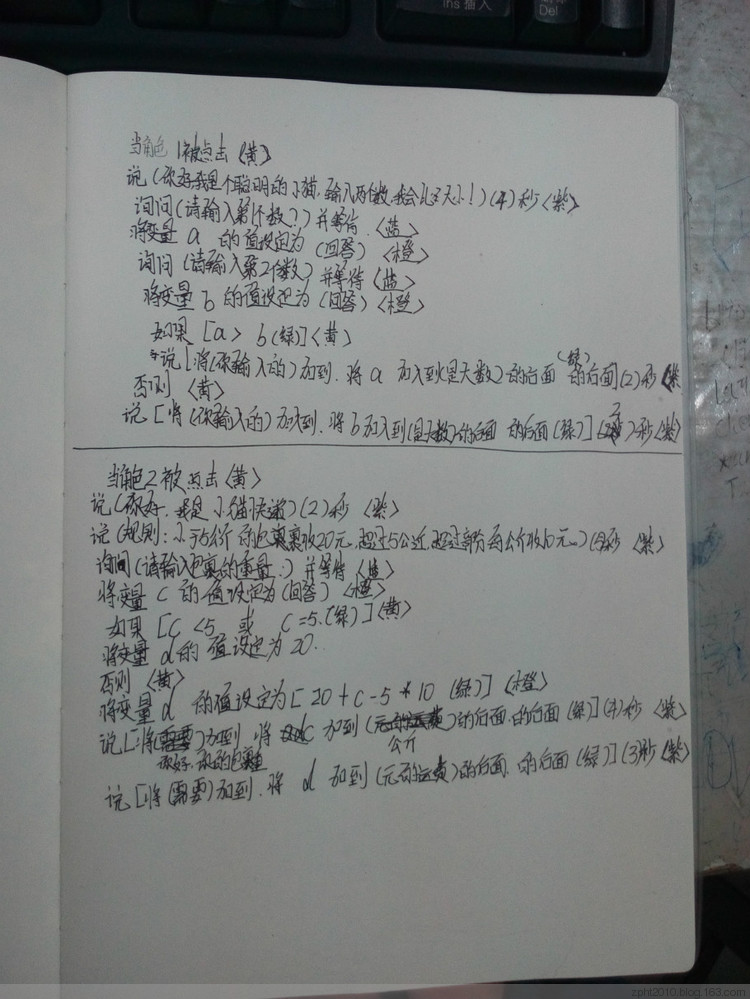 Ins 插入
Del
当角色1被点击〈黄〉
说(你好我是个聪明的小猫,输入两个数,我会比较大小!)(4)秒〈紫〉
询问(请输入第1个数?)并等待〈蓝〉
将变量 a 的值设定为(回答)〈橙〉
询问(请输入第2个数)并等待〈蓝〉
将变量 b 的值设定为(回答)〈橙〉
如果 [a > b(绿)]〈黄〉
说[将(你输入的)加到.将 a 加入到(是大数)的后面 的后面(绿)](2)秒〈紫
否则〈黄〉
说[将(你输入的)加入到.将 b 加入到(是大数)的后面 的后面(绿)](2)秒〈紫〉
当角色2被点击〈黄〉
说(你好,我是小猫快递)(2)秒〈紫〉
说(规则:小于5公斤的包裹收20元,超过5公斤,超过部分每公斤收10元。)秒〈紫〉
询问(请输入包裹的重量.)并等待〈蓝〉
将变量 c 的值设定为(回答)〈橙〉
如果 [c <5 或 c =5.(绿)]〈黄〉
将变量 d 的值设定为 20.
否则〈黄〉
将变量 d 的值设定为[ 20 + c - 5 * 10 (绿)]〈橙〉
说[将()加到 将 c 加到(公斤)的后面.的后面(绿)](4)秒〈紫〉
你好,你的包裹重
说[将(需要)加到.将 d 加到(元的运费)的后面.的后面(绿)](3)秒〈紫〉
zpht2010.blog.163.com